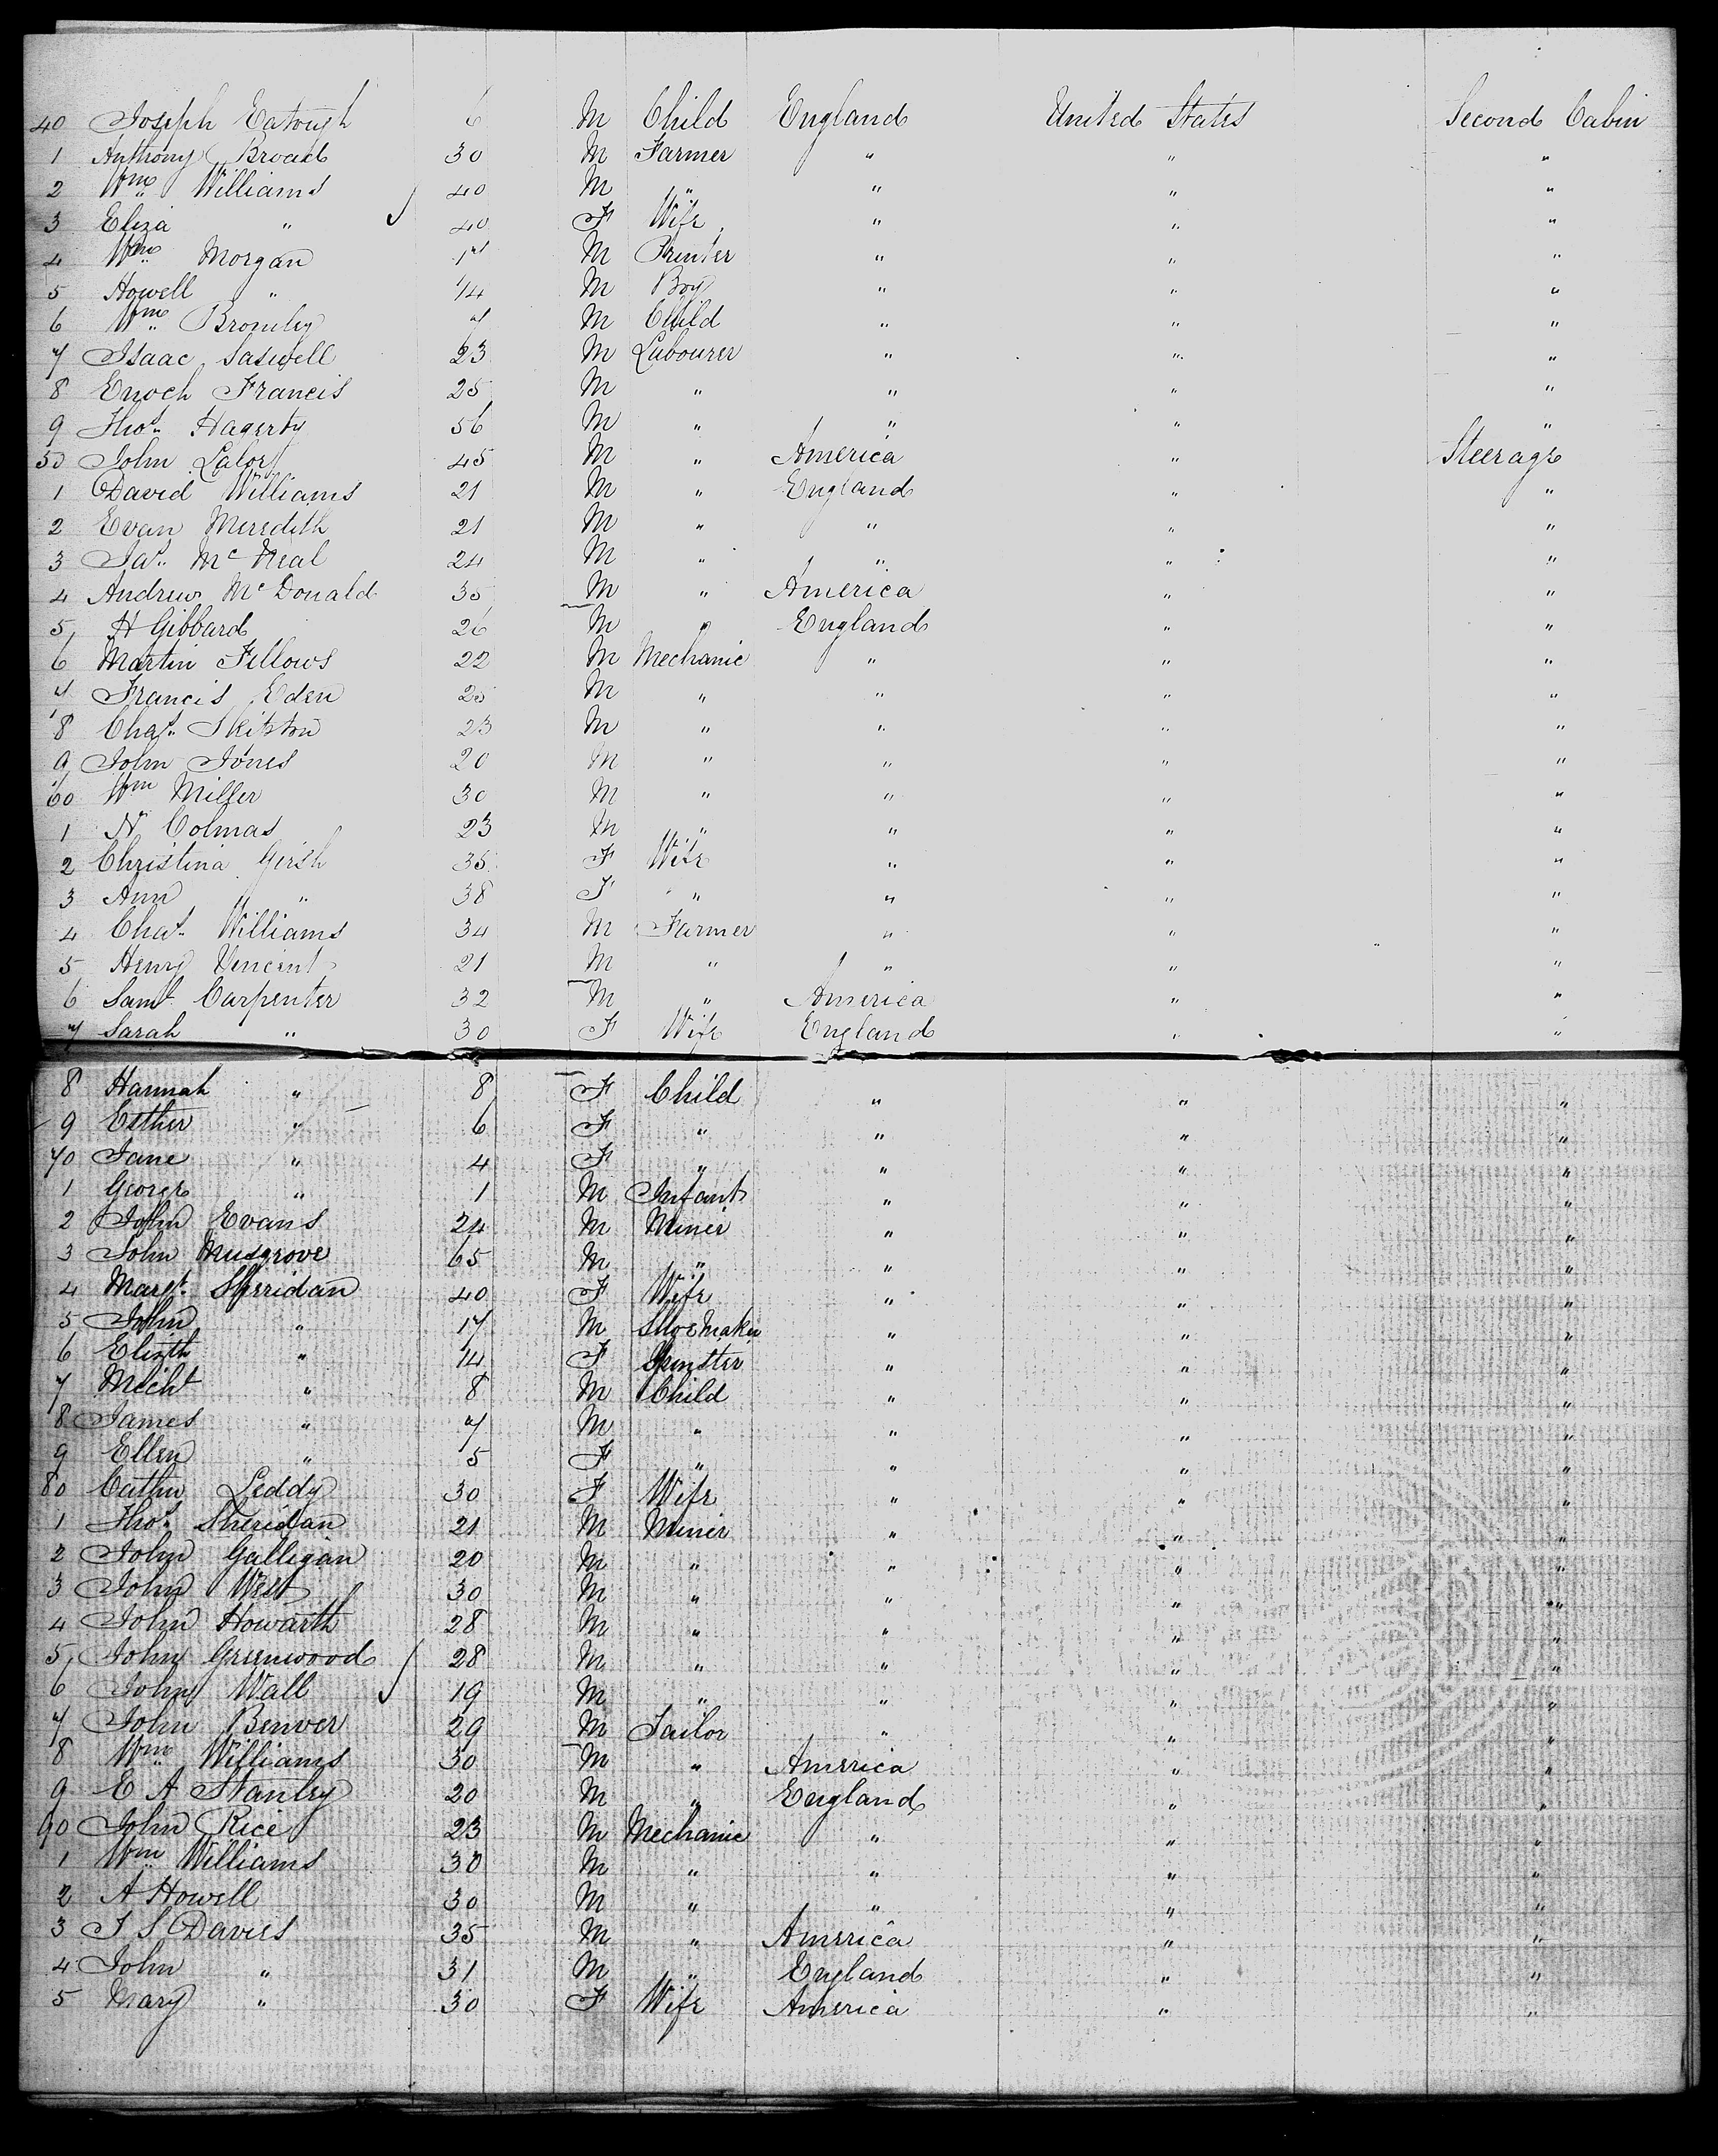 40 Joseph Eatough 6 M Child England United States Second Cabin
1 Anthony Broad 30 M Farmer " " "
2 Wm Williams 40 M " " " "
3 Eliza " 40 F Wife " " "
4 Wm Morgan M Printer " " "
5 Howell " 14 M Boy " " "
6 Wm Bromley 7 M Child " " "
7 Isaac Saswell 23 M Labourer " " "
8 Enoch Francis 25 M " " " "
9 Thos Hagerty 56 M " " " "
50 John Lalor 45 M " America " Steerage
1 David Williams 21 M " England " "
2 Evan Meredith 21 M " " " "
3 Jas Mc Neal 24 M " " " "
4 Andrew Mc Donald 35 M " America " "
5 H Gibbard 26 M " England " "
6 Martin Fellows 22 M Mechanic " " "
7 Francis Eden 25 M " " " "
8 Chas Skitton 23 M " " " "
9 John Jones 20 M " " " "
60 Wm Miller 30 M " " " "
1 N Colmas 23 M " " " "
2 Christina Girsh 35 F Wife " " "
3 Ann " 38 F " " " "
4 Chas Williams 34 M Farmer " " "
5 Henry Vincent 21 M " " " "
6 Saml Carpenter 32 M " America " "
7 Sarah " 30 F Wife England " "
8 Hannah " 8 F Child " " "
9 Esther " 6 F " " " "
70 Jane " 4 F " " " "
1 George " 1 M Infant " " "
2 John Evans 24 M Miner " " "
3 John Musgrove 65 M " " " "
4 Margt Sheridan 40 F Wife " " "
5 John " 17 M Shoemaker " " "
6 Elizth " 14 F Spinster " " "
7 Michl " 8 M Child " " "
8 James " 7 M " " " "
9 Ellen " 5 F " " " "
80 Cathn Leddy 30 F Wife " " "
1 Thos Sheridan 21 M Miner " " "
2 John Galligan 20 M " " " "
3 John West 30 M " " " "
4 John Howarth 28 M " " " "
5 John Greenwood 28 M " " " "
6 John Wall 19 M " " " "
7 John Benver 29 M Tailor " " "
8 Wm Williams 30 M " America " "
9 E A Stanley 20 M " England " "
90 John Rice 23 M Mechanic " " "
1 Wm Williams 30 M " " " "
2 A Howell 30 M " " " "
3 J S Davies 35 M " America " "
4 John " 31 M " England " "
5 Mary " 30 F Wife America " "